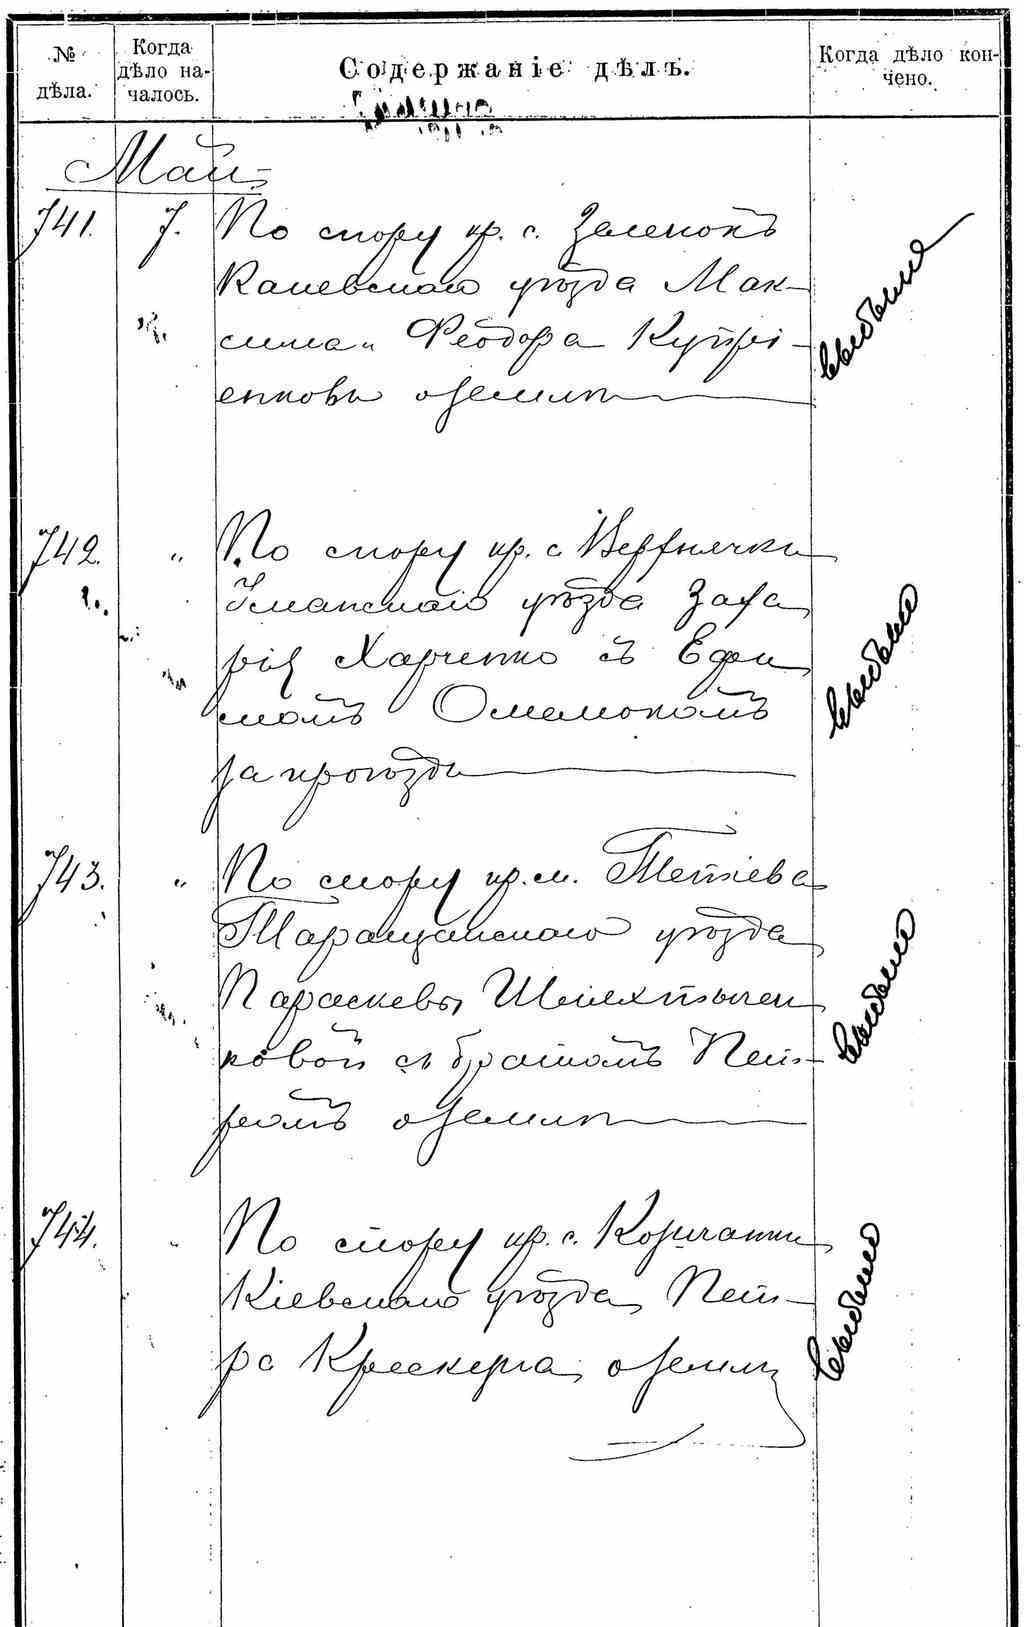 № дѣла.
Когда дѣло на-
чалось.
Содержаніе дѣлъ.
Когда дѣло кон-
чено.
Май
741. 7. По спору кр. с. Зеленокъ
Каневскаго уѣзда Мак-
сима и Феодора Купрі-
енковы о землѣ
выбыло
742. „ По спору кр. с. Верхнячки
Уманскаго уѣзда Заха
рія Харченко съ Ефи
момъ
за проѣздъ
выбыло
743. „ По спору кр. м. Тетіева
Таращанскаго уѣзда
Параскевы
ковой съ братомъ Пет-
ромъ о землѣ
выбыло
744. „ По спору кр. с.
Кіевскаго уѣзда Пет-
ра о землѣ
выбыло